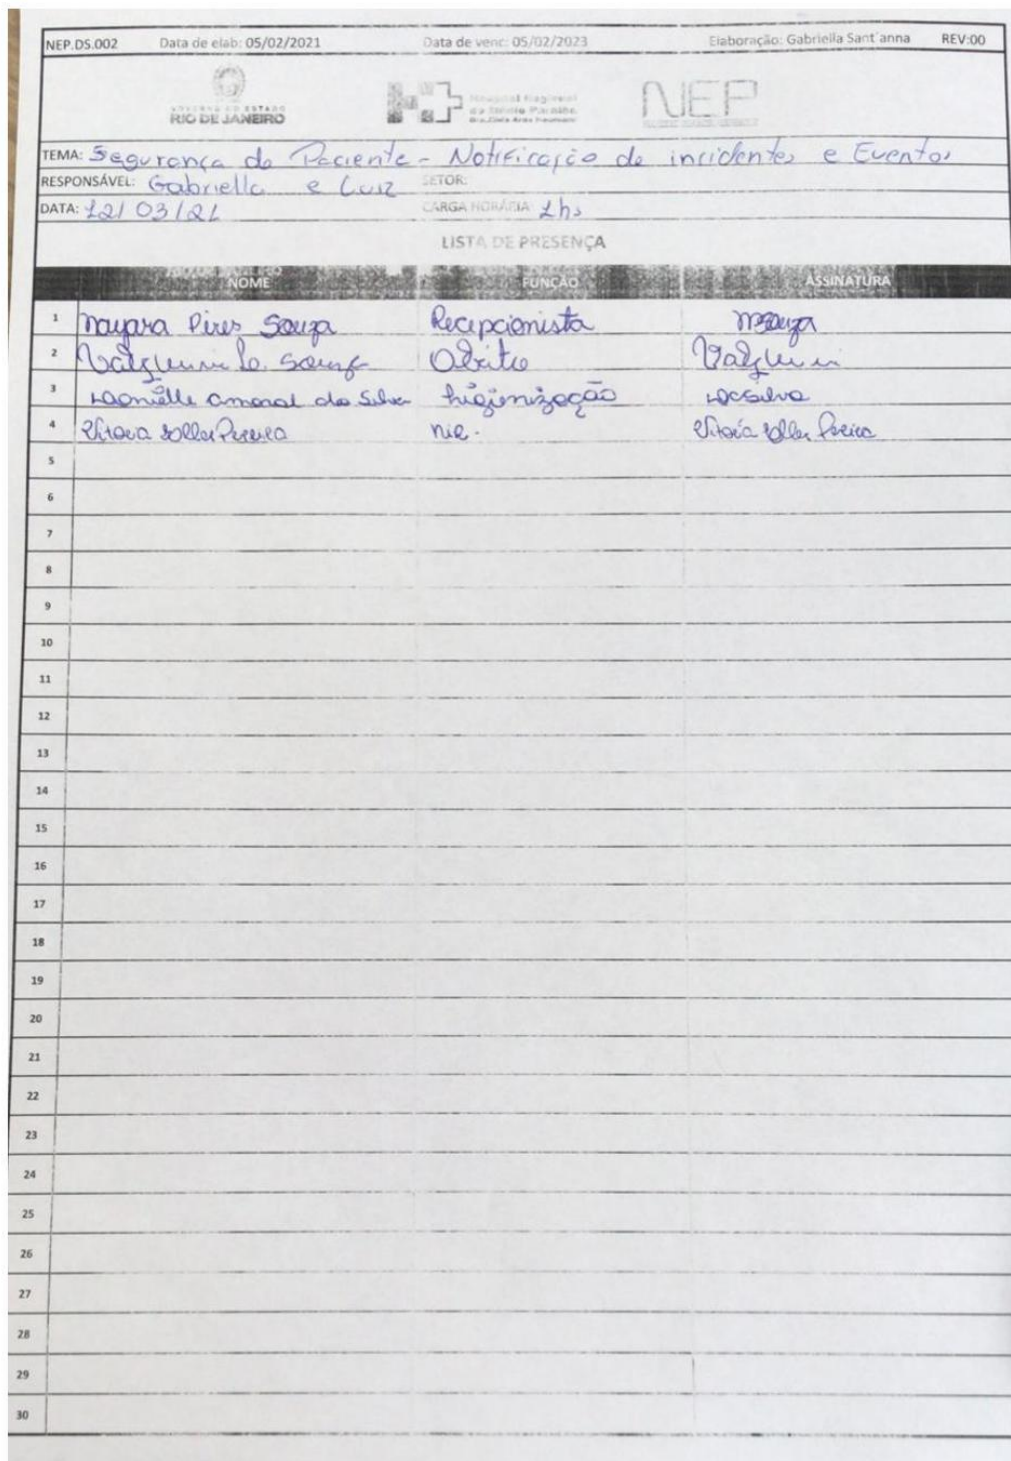 NEP.DS.002 Data de elab: 05/02/2021 Data de venc: 05/02/2023 Elaboração: Gabriella Sant´anna REV:00
GOVERNO DO ESTADO
RIO DE JANEIRO
Hospital Regional
do Médio Paraíba
NEP
TEMA: Segurança do Paciente - Notificação de incidentes e Eventos
RESPONSÁVEL: Gabriella e Luiz SETOR:
DATA: 12/03/21 CARGA HORÁRIA: 1hs
LISTA DE PRESENÇA
NOME FUNÇÃO ASSINATURA
1 Nayara Pires Souza Recepcionista
2 Souza
3 Amaral da Silva higienização
4 Pereira Pereira
5
6
7
8
9
10
11
12
13
14
15
16
17
18
19
20
21
22
23
24
25
26
27
28
29
30